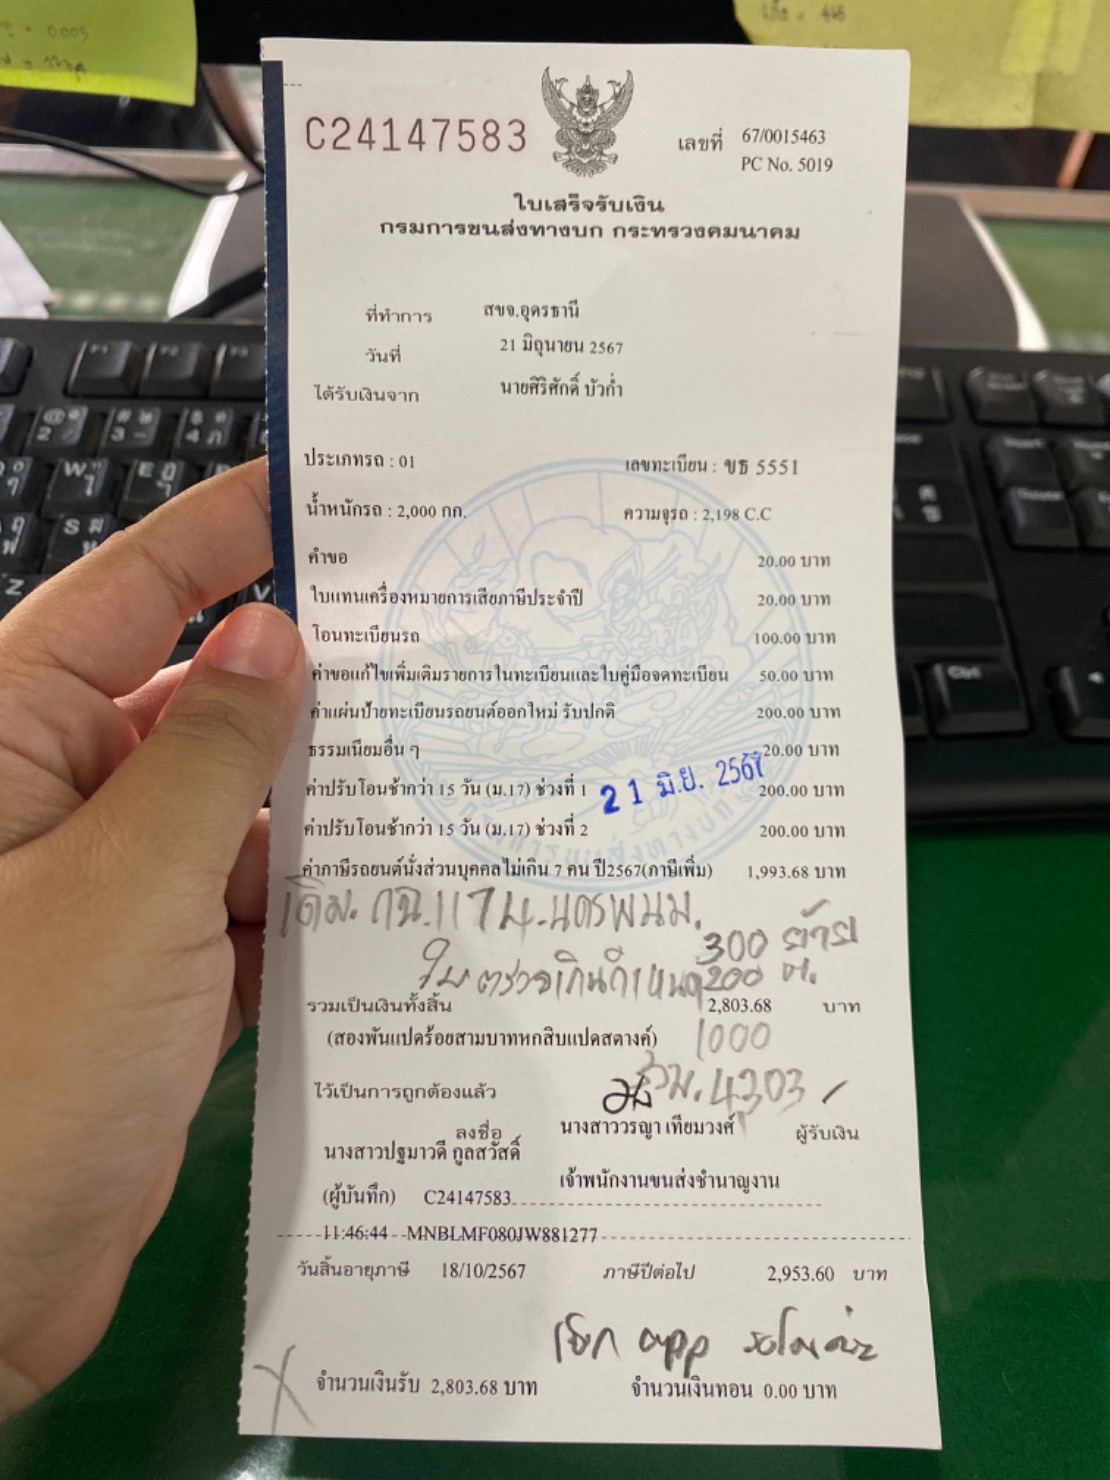 C24147583
เลขที่ 67/0015463
PC No. 5019
ใบเสร็จรับเงิน
กรมการขนส่งทางบก กระทรวงคมนาคม
ที่ทำการ สขจ.อุดรธานี
วันที่ 21 มิถุนายน 2567
ได้รับเงินจาก นายศิริศักดิ์ บัวก่ำ
ประเภทรถ : 01 เลขทะเบียน : ขธ 5551
น้ำหนักรถ : 2,000 กก. ความจุรถ : 2,198 C.C
คำขอ 20.00 บาท
ใบแทนเครื่องหมายการเสียภาษีประจำปี 20.00 บาท
โอนทะเบียนรถ 100.00 บาท
ค่าขอแก้ไขเพิ่มเติมรายการในทะเบียนและใบคู่มือจดทะเบียน 50.00 บาท
ค่าแผ่นป้ายทะเบียนรถยนต์ออกใหม่ รับปกติ 200.00 บาท
ธรรมเนียมอื่น ๆ 20.00 บาท
21 มิ.ย. 2567
ค่าปรับโอนช้ากว่า 15 วัน (ม.17) ช่วงที่ 1 200.00 บาท
ค่าปรับโอนช้ากว่า 15 วัน (ม.17) ช่วงที่ 2 200.00 บาท
ค่าภาษีรถยนต์นั่งส่วนบุคคลไม่เกิน 7 คน ปี2567(ภาษีเพิ่ม) 1,993.68 บาท
เดิม. กฉ.1174.นครพนม.
300 ย้าย
ใบตรวจเกินกำหนด 200
รวมเป็นเงินทั้งสิ้น 2,803.68 บาท
(สองพันแปดร้อยสามบาทหกสิบแปดสตางค์) 1000
รวม. 4303
ไว้เป็นการถูกต้องแล้ว
ลงชื่อ นางสาววรญา เทียมวงศ์ ผู้รับเงิน
นางสาวปฐมาวดี กูลสวัสดิ์
เจ้าพนักงานขนส่งชำนาญงาน
(ผู้บันทึก) C24147583
11:46:44 --MNBLMF080JW881277
วันสิ้นอายุภาษี 18/10/2567 ภาษีปีต่อไป 2,953.60 บาท
app
จำนวนเงินรับ 2,803.68 บาท จำนวนเงินทอน 0.00 บาท